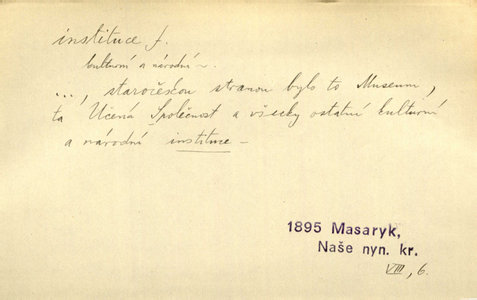 instituce f.
kulturní a národní ~.
..., staročeskou stranou bylo to Museum,
ta Učená Společnost a všecky ostatní kulturní
a národní instituce –
1895 Masaryk,
Naše nyn. kr.
VIII, 6.